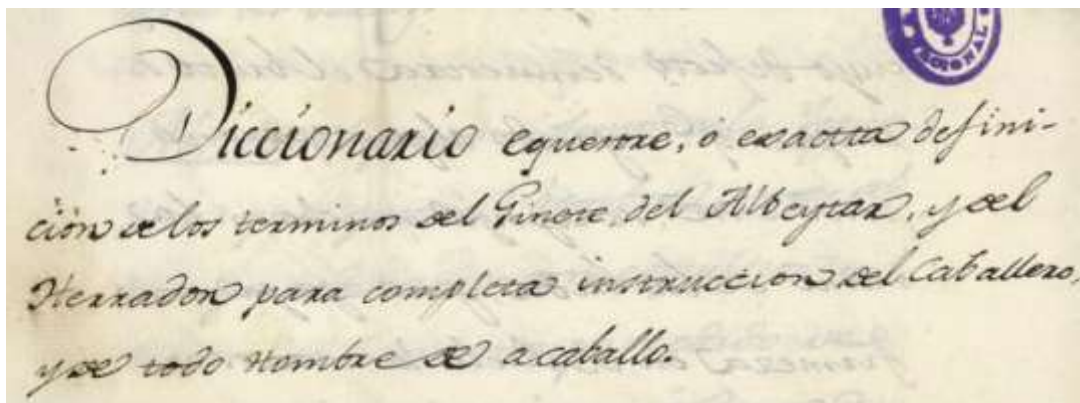 Diccionario equestre, ó exactta defini-
ción de los terminos del Ginete, del Albeytar, y del
Herrador para completa instruccion del Caballero,
y de todo Hombre de a caballo.